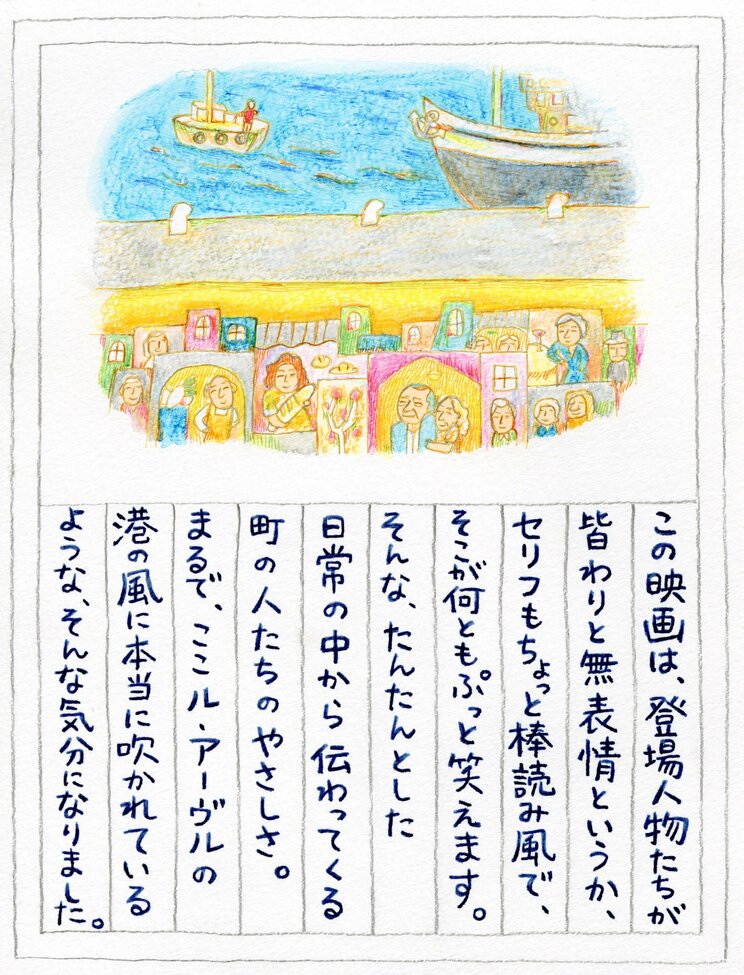 この映画は、登場人物たちが
皆わりと無表情というか、
セリフもちょっと棒読み風で、
そこが何ともぷっと笑えます。
そんな、たんたんとした
日常の中から伝わってくる
町の人たちのやさしさ。
まるで、ここル・アーヴルの
港の風に本当に吹かれている
ような、そんな気分になりました。